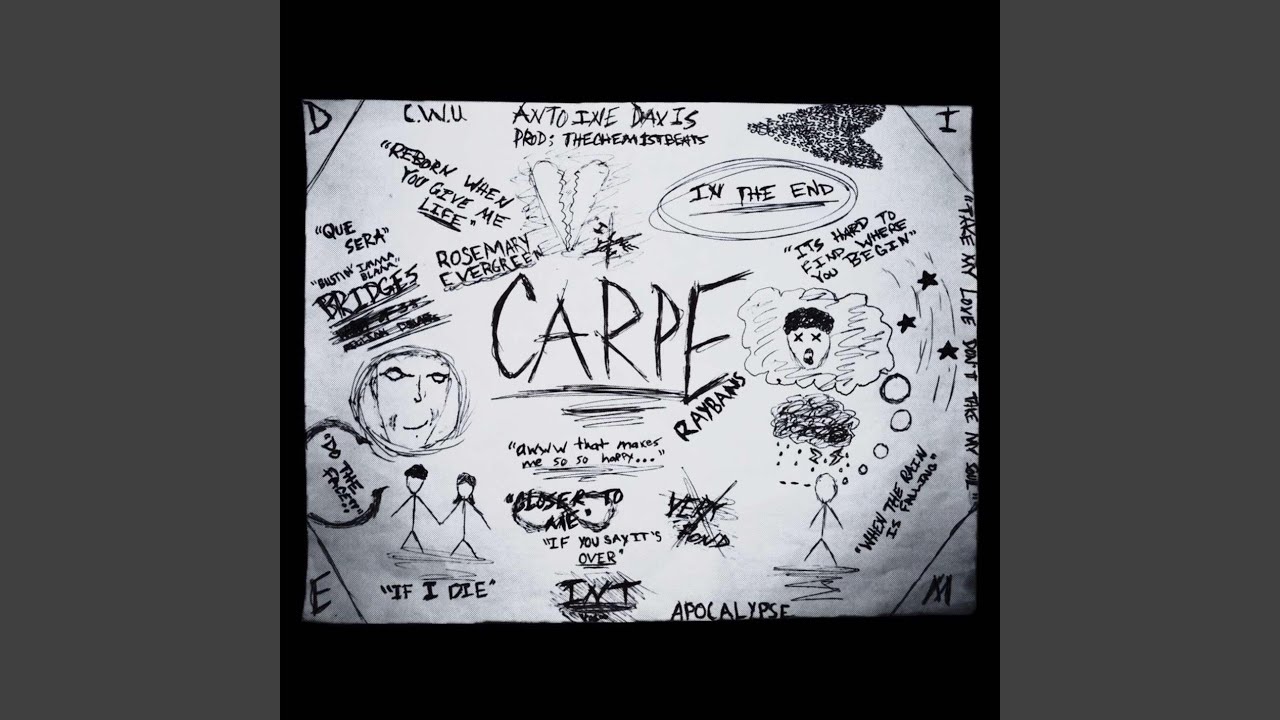 D
C.W.U.
ANTOINE DAVIS
PROD: THECHEMISTBEATS
I
"REBORN WHEN
YOU GIVE ME
LIFE"
IN THE END
"QUE
SERA"
"BUSTIN' IMMA
BLAM"
BRIDGES
ROSEMARY
EVERGREEN"
"ITS HARD TO
FIND WHERE
YOU BEGIN"
"TAKE MY LOVE DON'T TAKE MY SOUL"
CARPE
RAYBANS
"awww that makes
me so so happy..."
THE
"CLOSER TO
ME"
VERY
"IF YOU SAY IT'S
OVER"
"WHEN THE RAIN
IS FALLING"
E
"IF I DIE"
INT
APOCALYPSE
M